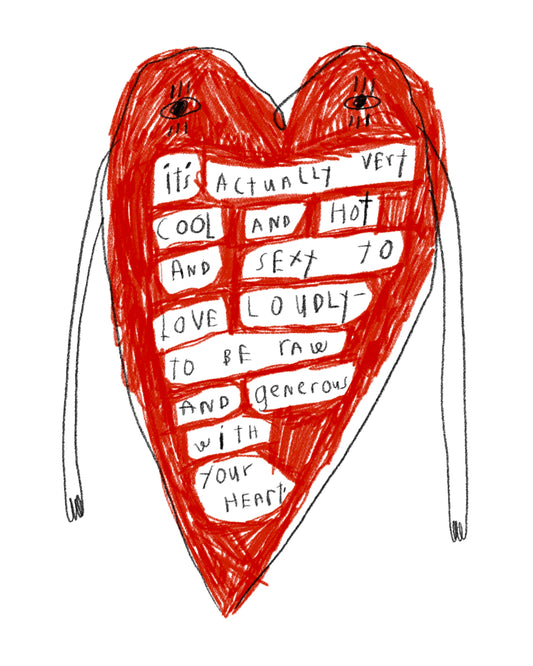 it's ACTUALLY VERY
COOL AND HOT
AND SEXY TO
LOVE LOUDLY-
TO BE rAW
AND generous
wiTH
YOUr
HEArT